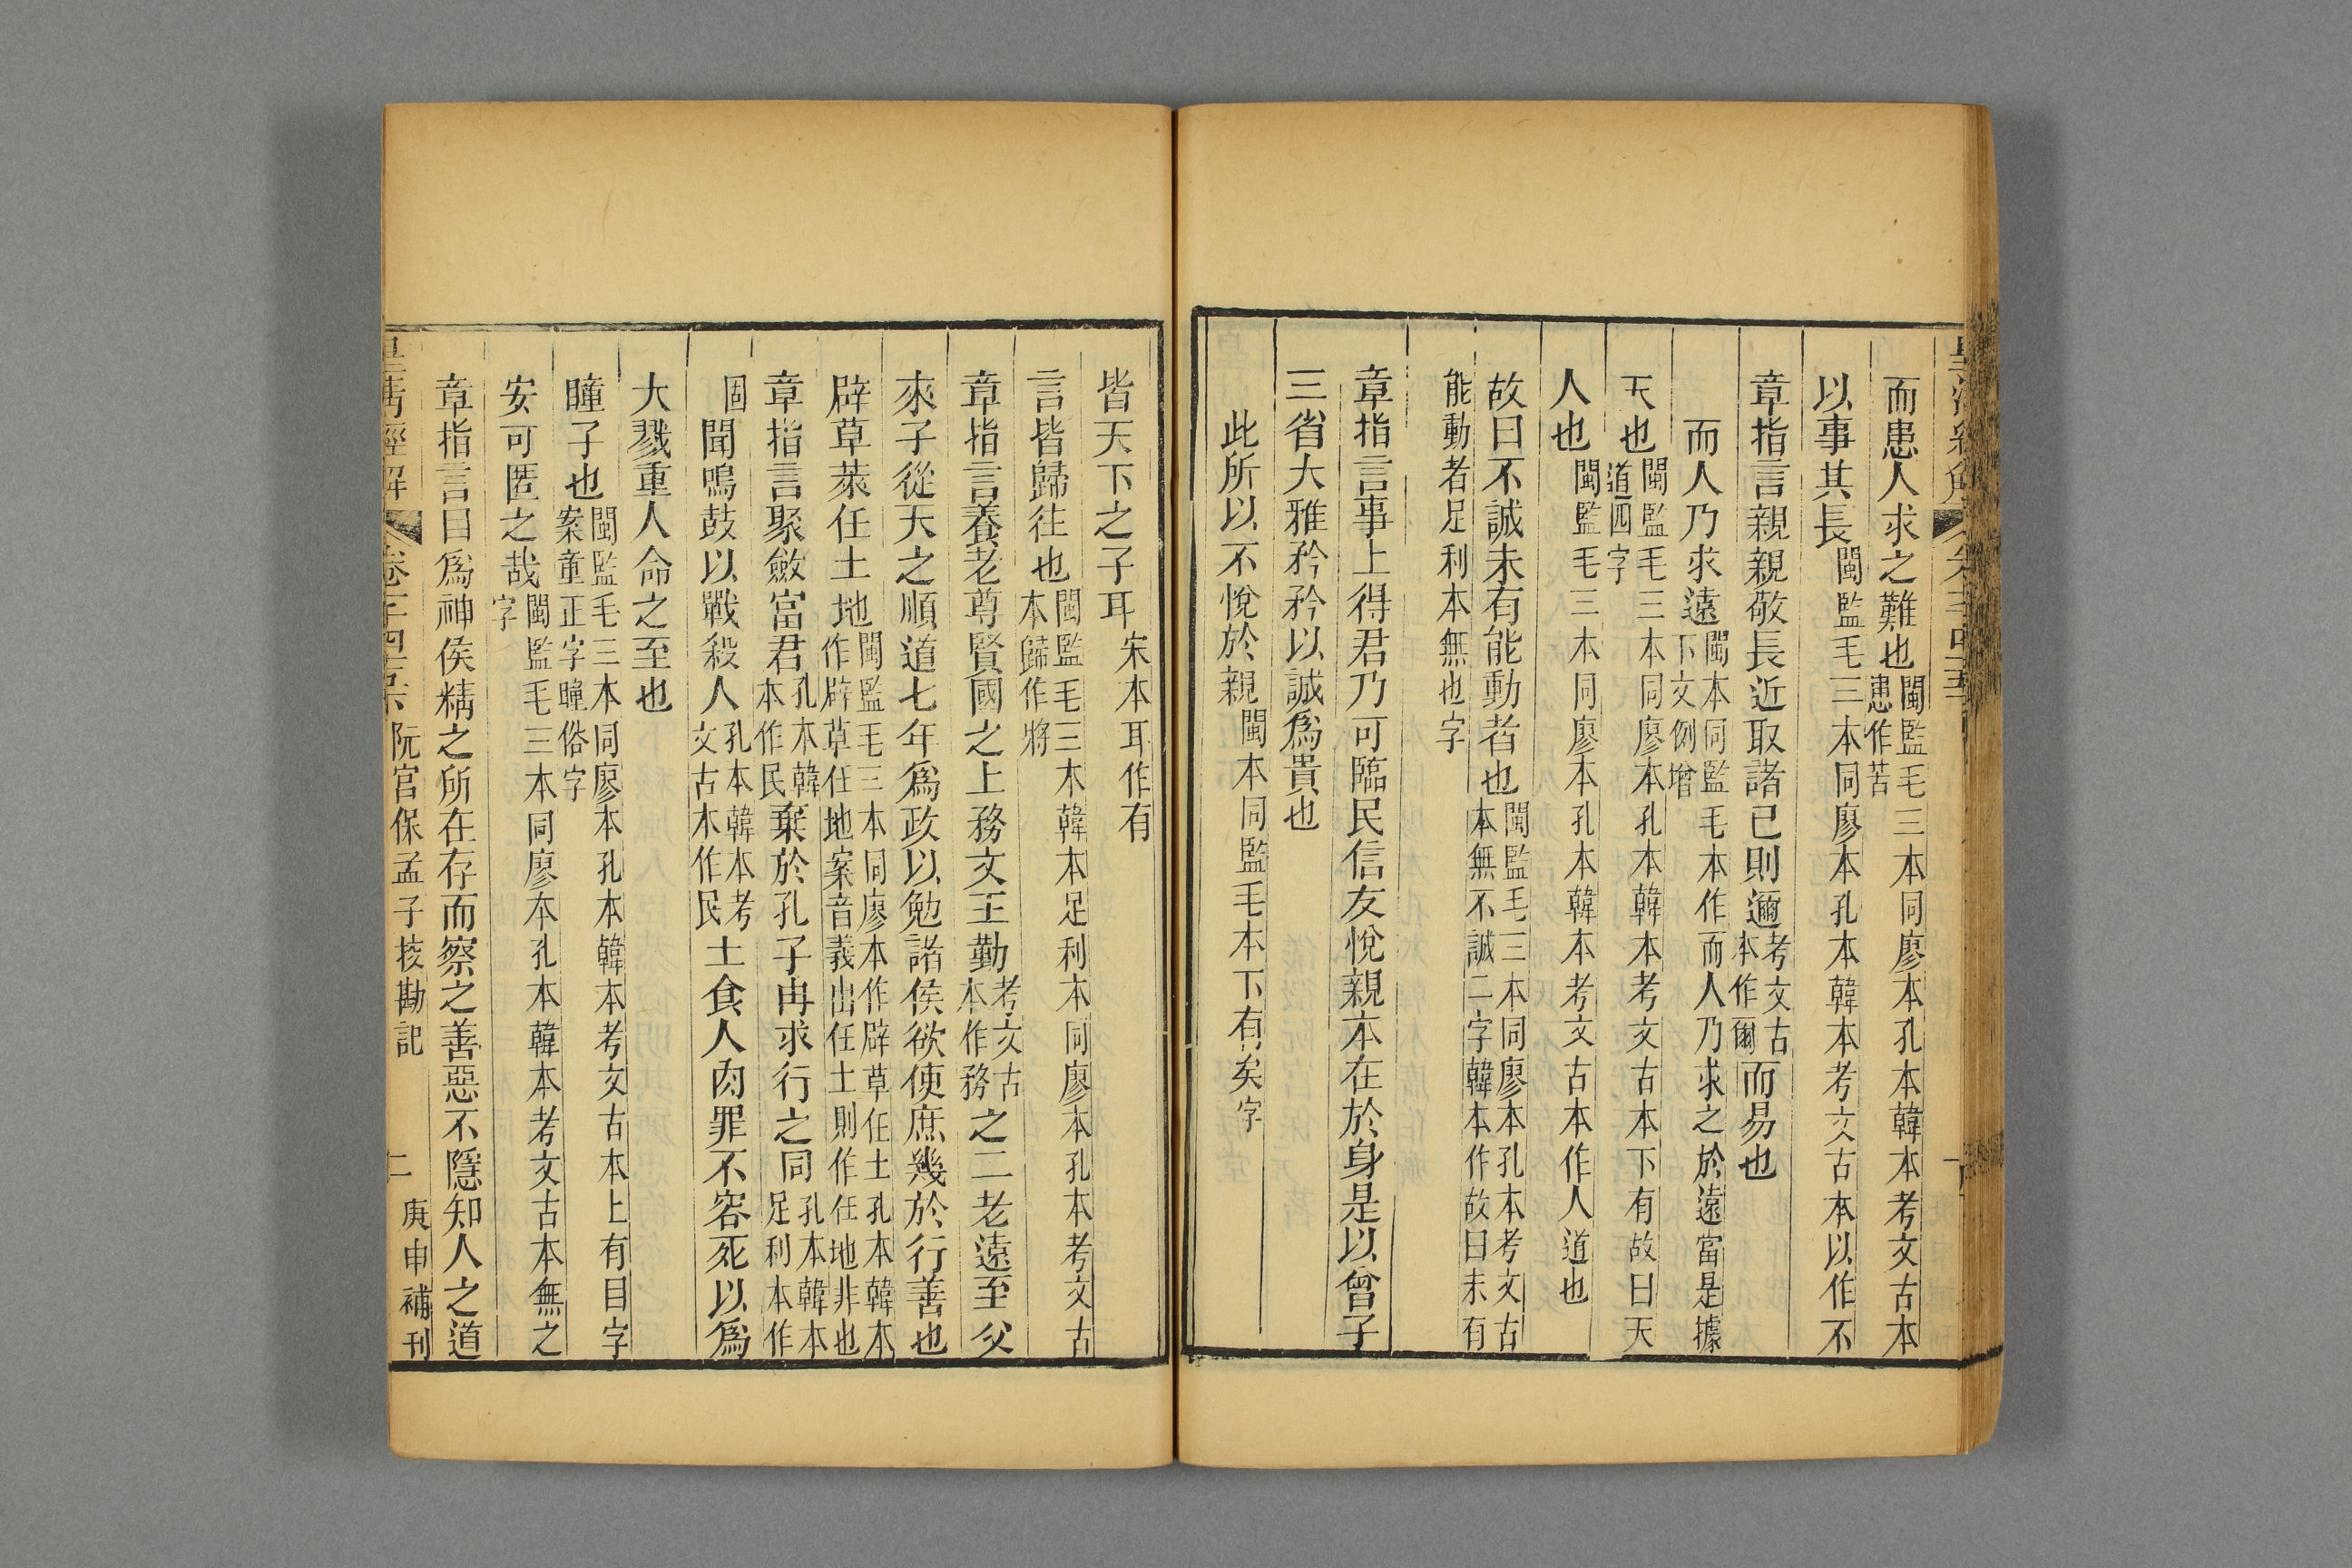 而患人求之難也閩監毛三本同廖本孔本韓本考文古本患作苦
以事其長閩監毛三本同廖本孔本韓本考文古本以作不
章指言親親敬長近取諸己則邇考文古本作爾而易也
而人乃求遠閩本同監毛本作而人乃求之於遠當是據下文例增
天也閩監毛三本同廖本孔本韓本考文古本下有故曰天道四字
人也閩監毛三本同廖本孔本韓本考文古本作人道也
故曰不誠未有能動者也閩監毛三本同廖本孔本考文古本無不誠二字韓本作故曰未有
能動者足利本無也字
章指言事上得君乃可臨民信友悅親本在於身是以曾子
三省大雅矜矜以誠爲貴也
此所以不悅於親閩本同監毛本下有矣字
皆天下之子耳宋本耳作有
言皆歸往也閩監毛三本韓本足利本同廖本孔本考文古本歸作將
章指言養老尊賢國之上務文王勤考文古本作務之二老遠至父
來子從天之順道七年爲政以勉諸侯欲使庶幾於行善也
辟草萊任土地閩監毛三本同廖本作辟草任土孔本韓本作辟草任地案音義出任土則作任地非也
章指言聚斂富君孔本韓本作民棄於孔子冉求行之同孔本韓本足利本作
固聞鳴鼓以戰殺人孔本韓本考文古本作民土食人肉罪不容死以爲
大戮重人命之至也
瞳子也閩監毛三本同廖本孔本韓本考文古本上有目字案童正字瞳俗字
安可匿之哉閩監毛三本同廖本孔本韓本考文古本無之字
章指言目爲神侯精之所在存而察之善惡不隱知人之道
皇清經解 卷千四五六 阮宮保孟子挍勘記 二 庚申補刊